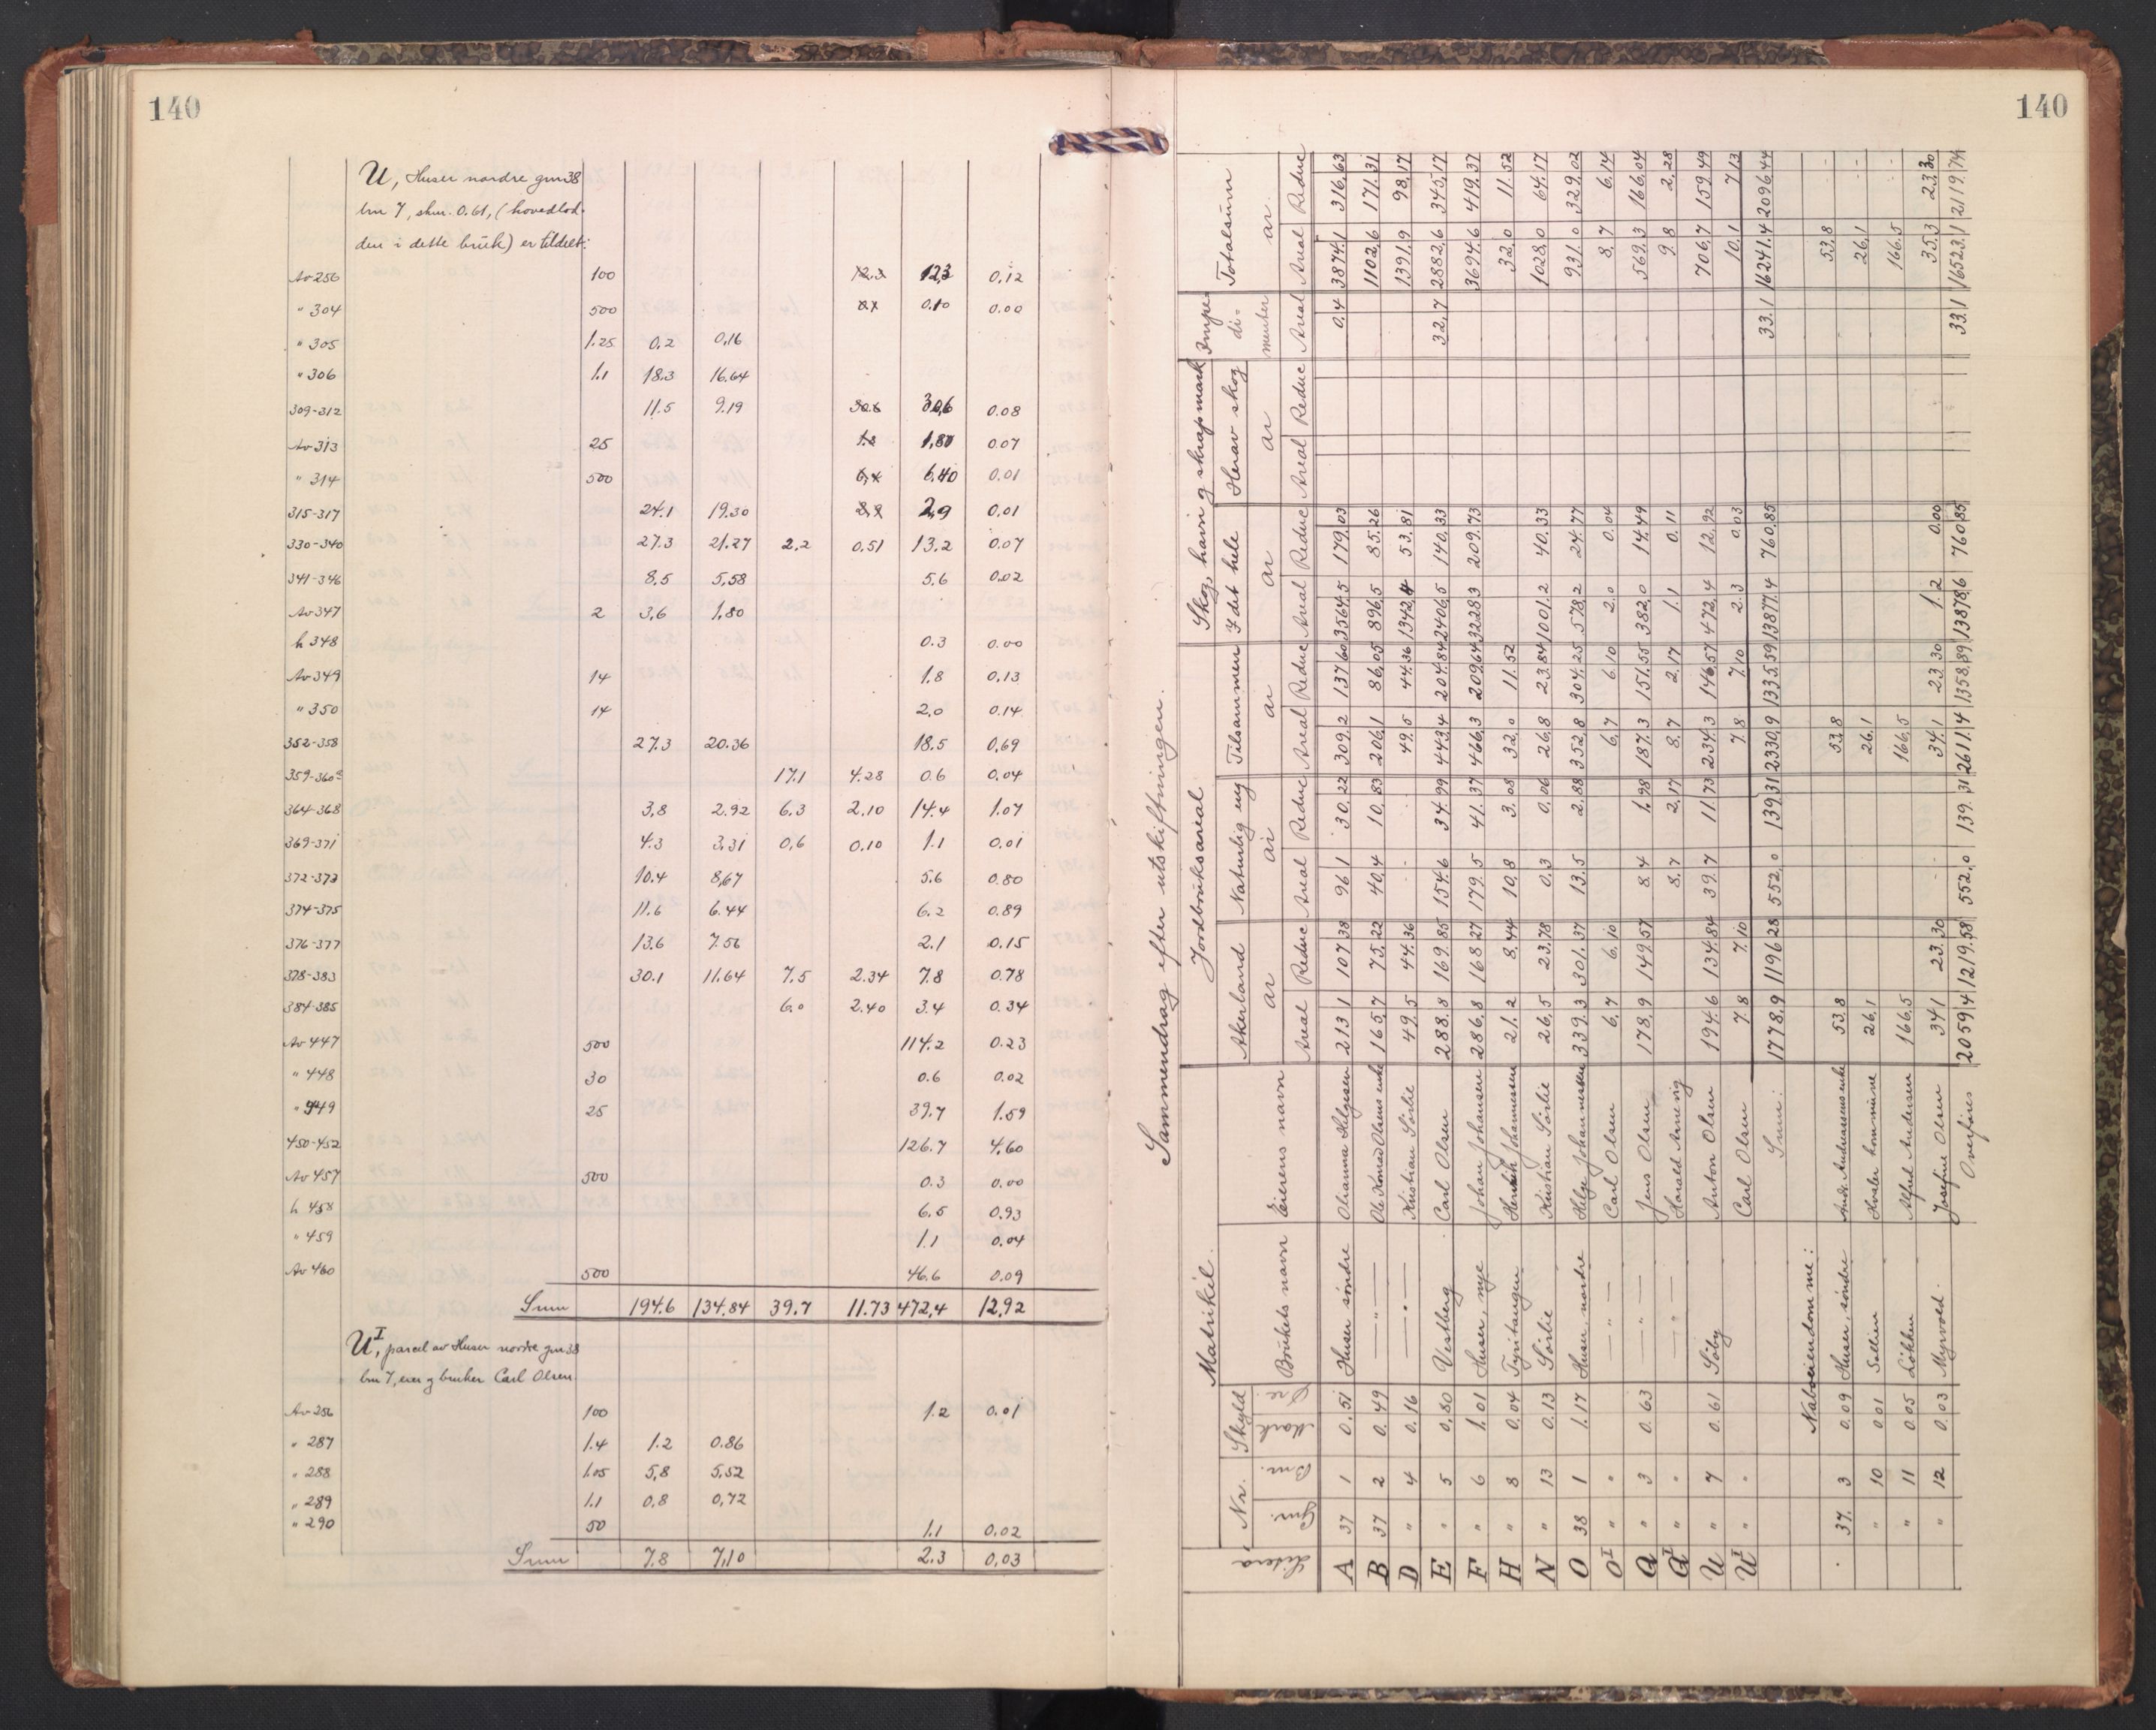 140
U, Huser nordre gnr 38
bnr 7, skur. 0.61, (hovedlod-
den i dette bruk) er tildelt:
Av 256 100 12.3 12,3 0,12
" 304 500 0.10 0.00
" 305 1.25 0.2 0,16
" 306 1.1 18.3 16.64
309-312 11.5 9.19 30.6 30,6 0.08
Av 313 25 1.8 1,80 0.07
" 314 500 6,4 6,40 0.01
315-317 24.1 19.30 2,9 2,9 0,01
330-340 27.3 21.27 2,2 0,51 13.2 0.07
341-346 8,5 5,58 5.6 0,02
Av 347 2 3,6 1,80
h 348 0.3 0.00
Av 349 14 1.8 0.13
" 350 14 2,0 0.14
352-358 27.3 20.36 18.5 0,69
359-360 17.1 4.28 0.6 0.04
364-368 3,8 2.92 6.3 2,10 14.4 1.07
369-371 4.3 3,31 0,6 0.10 1.1 0.01
372-373 10.4 8,67 5.6 0.80
374-375 11.6 6.44 6.2 0.89
376-377 13.6 7.56 2.1 0.15
378-383 30.1 11,64 7.5 2.34 7.8 0.78
384-385 6.0 2.40 3.4 0.34
Av 447 500 114.2 0.23
" 448 30 0.6 0.02
" 449 25 39.7 1.59
450-452 126.7 4,60
Av 457 500 0.3 0.00
h 458 6.5 0.93
" 459 1.1 0.04
Av 460 500 46.6 0.09
Sum 194.6 134.84 39.7 11.73 472,4 12,92
U I, parcel av Huser nordre gnr 38
bnr 7, eier og bruker Carl Olsen
Av 286 100 1.2 0.01
" 287 1.4 1.2 0.86
" 288 1.05 5,8 5,52
" 289 1.1 0.8 0,72
" 290 50 1.1 0.02
Sum 7.8 7,10 2.3 0,03
140
Sammendrag efter utskiftningen.
Matrikel. Jordbruksareal Skog, havn og skrapmark Impedimenter Totalsum
Litera Nr. Skyld Brukets navn Eierens navn Akerland ar Naturlig eng ar Tilsammen ar I det hele ar Herav skog ar ar.
Gnr. Bnr. Mark Øre Areal Reduc Areal Reduc Areal Reduc Areal Reduc Areal Reduc Areal Areal Reduc
A 37 1 0.51 Huser söndre Olianna Helgesen 213,1 107,38 96,1 30,22 309,2 137,60 3564,5 179,03 0,4 3874,1 316,63
B 37 2 0.49 — " — Ole Konrad Olsens enke 165,7 75,22 40,4 10,83 206,1 86,05 896,5 85,26 1102,6 171,31
D " 4 0.16 — " — Kristian Sörlie 49,5 44,36 49,5 44,36 1342,4 53,81 1391,9 98,17
E " 5 0,80 Vestberg Carl Olsen 288,8 169,85 154,6 34,99 443,4 204,84 2406,5 140,33 32,7 2882,6 345,17
F " 6 1.01 Huser, nye Johan Johansen 286,8 168,27 179,5 41,37 466,3 209,64 3228,3 209,73 3694,6 419,37
H " 8 0.04 Tyritangen Henrik Johannessen 21,2 8,44 10,8 3,08 32,0 11,52 32,0 11,52
N " 13 0.13 Sörlie Kristian Sörlie 26,5 23,78 0,3 0,06 26,8 23,84 1001,2 40,33 1028,0 64,17
O 38 1 1.17 Huser, nordre Helge Johannessen 339,3 301,37 13,5 2,88 352,8 304,25 578,2 24,77 931,0 329,02
O I " " — " — Carl Olsen 6,7 6,10 6,7 6,10 2,0 0,04 8,7 6,14
Q " 3 0.63 — " — Jens Olsen 178,9 149,57 8,4 1,98 187,3 151,55 382,0 14,49 569,3 166,04
Q I " " — " — Harald Arnevig 8,7 2,17 8,7 2,17 1,1 0,11 9,8 2,28
U " 7 0.61 Söby Anton Olsen 194,6 134,84 39,7 11,73 234,3 146,57 472,4 12,92 706,7 159,49
U I " " Carl Olsen 7,8 7,10 7,8 7,10 2,3 0,03 10,1 7,13
Sum: 1778,9 1196,28 552,0 139,31 2330,9 1335,59 13877,4 760,85 33,1 16241,4 2096,44
Naboeiendommer:
37. 3 0.09 Huser, söndre Andr. Andreassens enke 53,8 53,8 53,8
" 10 0.01 Sollien Hvaler kommune 26,1 26,1 26,1
" 11 0.05 Lökken Alfred Andersen 166,5 166,5 166,5
" 12 0.03 Myrvold. Josefine Olsen 34,1 23,30 34,1 23,30 1,2 0,00 35,3 23,30
Overføres 2059,4 1219,58 552,0 139,31 2611,4 1358,89 13878,6 760,85 33,1 16523,1 2119,74